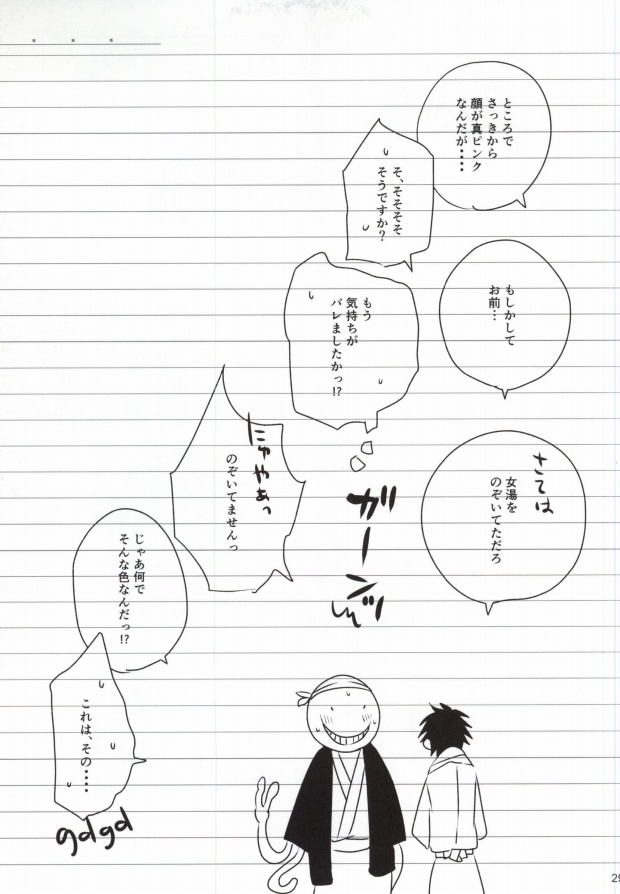 ところで
さっきから
顔が真ピンク
なんだが・・・・
そ、そそそそ
そうですか？
もしかして
お前…
もう
気持ちが
バレましたかっ!?
さては
女湯を
のぞいてただろ
ガーンッ
にゅやぁっ
のぞいてませんっ
じゃあ何で
そんな色なんだっ!?
これは、その・・・・
gdgd
29